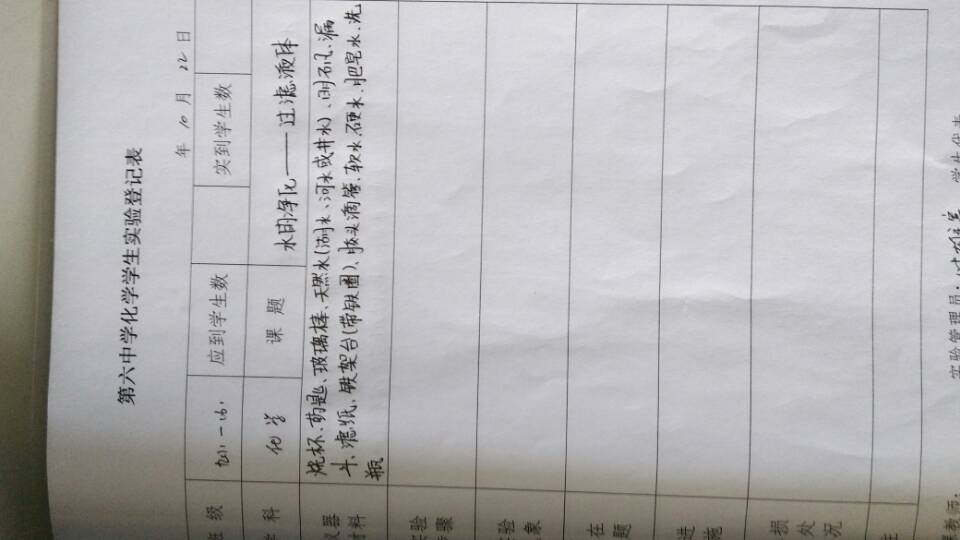 第六中学化学学生实验登记表
年 10 月 22 日
班 级 应到学生数 实到学生数
学 科 化学 课 题 水的净化——过滤液体
仪器
材料
烧杯、药匙、玻璃棒、天然水(湖水、河水或井水)、明矾、漏
斗、滤纸、铁架台(带铁圈)、胶头滴管、软水、硬水、肥皂水、洗
瓶
实验
步骤
实验
现象
存在
题
进
施
损
处
况
注
实验管理员:
学生代表
课教师: